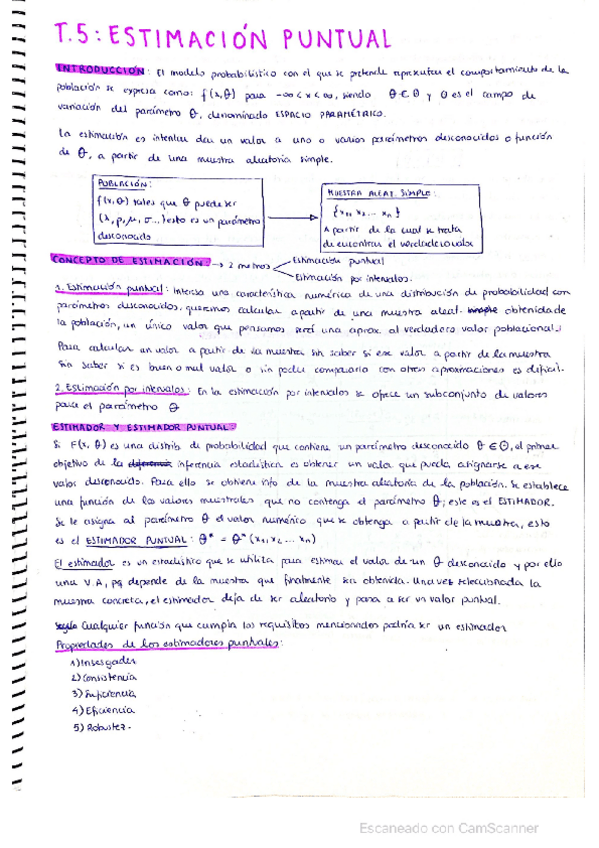 T.5: ESTIMACIÓN PUNTUAL
INTRODUCCIÓN: El modelo probabilístico con el que se pretende representar el comportamiento de la
población se expresa como: f(x,θ) para -∞<x<∞, siendo θ∈Θ y Θ es el campo de
variación del parámetro θ, denominado ESPACIO PARAMÉTRICO.
La estimación es intentar dar un valor a uno o varios parámetros desconocidos o función
de θ, a partir de una muestra aleatoria simple.
POBLACIÓN:
f(x,θ) tales que θ puede ser
(λ, p, μ, σ...) esto es un parámetro
desconocido
MUESTRA ALEAT. SIMPLE:
{x₁, x₂ ... xn}
A partir de la cual se trata
de encontrar el verdadero valor
CONCEPTO DE ESTIMACIÓN: → 2 metros
Estimación puntual
Estimación por intervalos.
1. Estimación puntual: interesa una característica numérica de una distribución de probabilidad con
parámetros desconocidos, queremos calcular a partir de una muestra aleat. simple obtenida de
la población, un único valor que pensamos será una aprox. al verdadero valor poblacional.
Para calcular un valor a partir de la muestra sin saber si ese valor a partir de la muestra
sin saber si es buen o mal valor o sin poder compararlo con otras aproximaciones es difícil.
2. Estimación por intervalos: En la estimación por intervalos se ofece un subconjunto de valores
para el parámetro θ
ESTIMADOR Y ESTIMADOR PUNTUAL:
Si F(x, θ) es una distrib. de probabilidad que contiene un parámetro desconocido θ∈Θ, el primer
objetivo de la inferencia estadística es obtener un valor que pueda asignarse a ese
valor desconocido. Para ello se obtiene info de la muestra aleatoria de la población. Se establece
una función de los valores muestrales que no contenga el parámetro θ; este es el ESTIMADOR.
Se le asigna al parámetro θ el valor numérico que se obtenga a partir de la muestra, esto
es el ESTIMADOR PUNTUAL: θ* = θ*(x₁, x₂ ... xn)
El estimador es un estadístico que se utiliza para estimar el valor de un θ desconocido y por ello
una V.A, pq depende de la muestra que finalmente sea obtenida. Una vez seleccionada la
muestra concreta, el estimador deja de ser aleatorio y pasa a ser un valor puntual.
Cualquier función que cumpla los requisitos mencionados podría ser un estimador
Propiedades de los estimadores puntuales:
1) Insesgadez
2) Consistencia
3) Suficiencia
4) Eficiencia
5) Robustez.
Escaneado con CamScanner